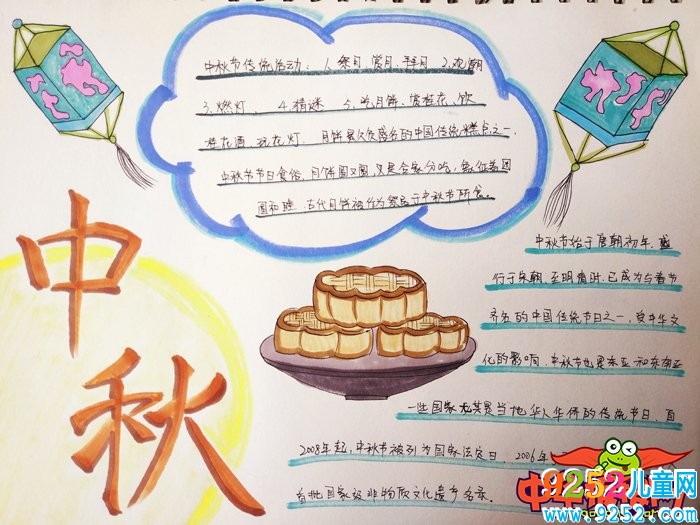 中秋节传统活动：1.祭月、赏月、拜月 2.观潮
3.燃灯、 4.猜谜 5.吃月饼、赏桂花、饮
桂花酒、玩花灯、月饼是久负盛名的中国传统糕点之一，
中秋节节日食俗。月饼圆又圆，又是合家分吃，象征着团
圆和睦。古代月饼被作为祭品于中秋节所食。
中秋
中秋节始于唐朝初年，盛
行于宋朝，至明清时，已成为与春节
齐名的中国传统节日之一。受中华文
化的影响，中秋节也是东亚和东南亚
一些国家尤其是当地华人华侨的传统节日。自
2008年起，中秋节被列为国家法定日。2006年
首批国家级非物质文化遗产名录。
9252儿童网
www.9252.com